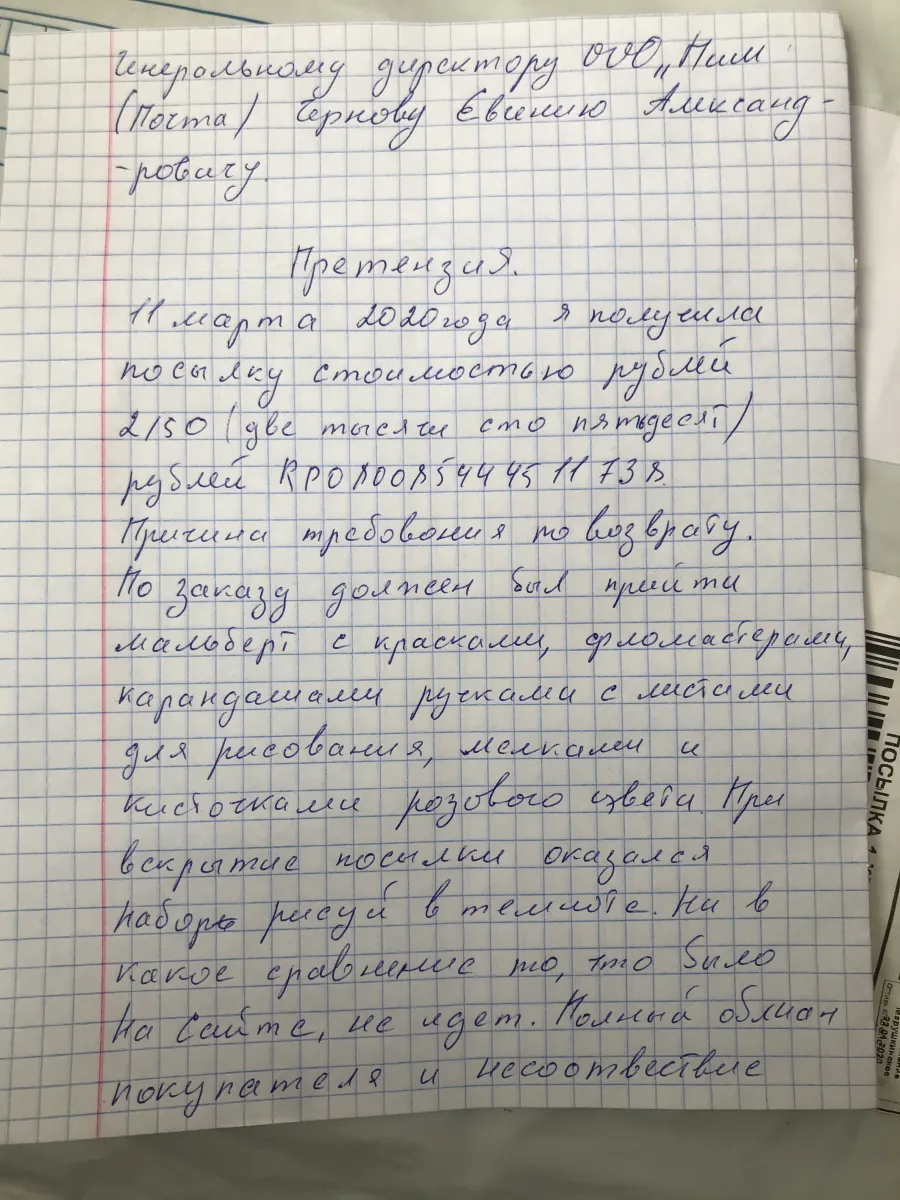 Генеральному директору ООО „Пим
(Почта) Чернову Евгению Александ-
-ровичу.
Претензия.
11 марта 2020 года я получила
посылку стоимостью рублей
2150 (две тысячи сто пятьдесят)
рублей
Причина требования по возврату.
По заказу должен был прийти
мальберт с красками, фломастерами,
карандашами ручками с листами
для рисования, мелками и
кисточками розового цвета. При
вскрытие посылки оказался
набор рисуй в темноте. Ни в
какое сравнение то, что было
на сайте, не идет. Полный обман
покупателя и несоотвествие
ПОСЫЛКА 1